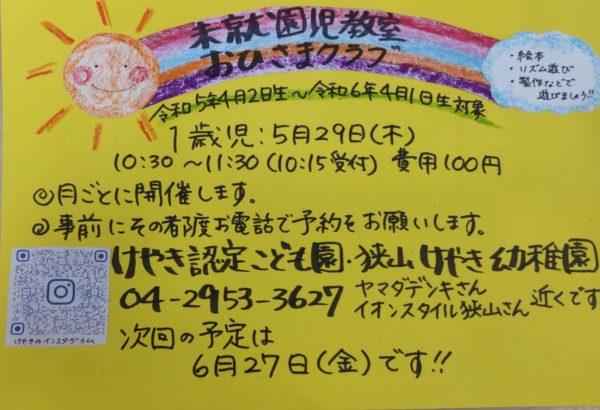 未就園児教室
おひさまクラブ
・絵本
・リズム遊び
・製作などで
遊びましょう!!
令和5年4月2日生～令和6年4月1日生対象
1歳児:5月29日(木)
10:30～11:30(10:15受付) 費用100円
◎月ごとに開催します。
◎事前にその都度お電話で予約をお願いします。
けやき認定こども園・狭山けやき幼稚園
04-2953-3627
ヤマダデンキさん
イオンスタイル狭山さん 近くです
けやきのインスタグラム
次回の予定は
6月27日(金)です!!